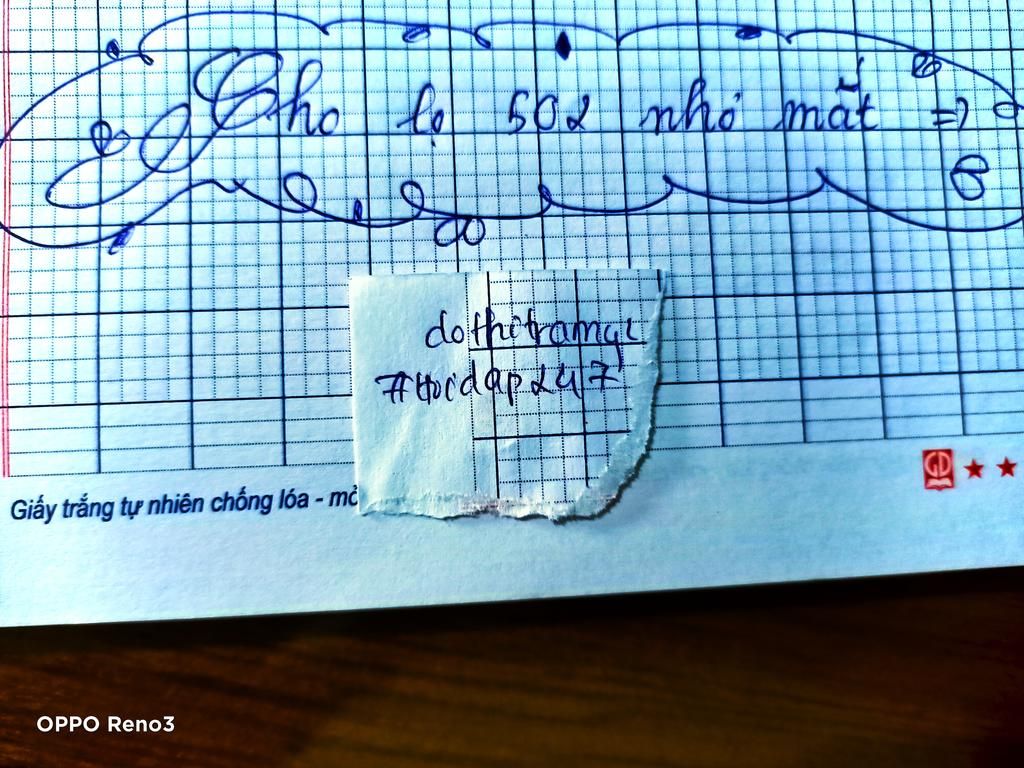 Cho lọ 502 nhỏ mắt =>
dothitramyc
#Hoidap247
Giấy trắng tự nhiên chống lóa - mở
GD
OPPO Reno3